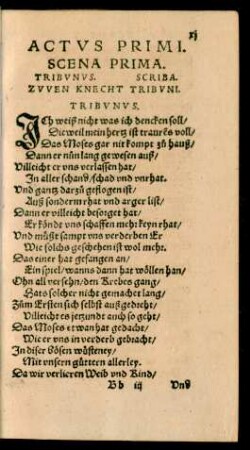 ACTVS PRIMI.
SCENA PRIMA.
TRIBVNVS. SCRIBA.
ZVVEN KNECHT TRIBVNI.
TRIBVNVS.
ICh weiß nicht was ich dencken soll/
Die weil mein hertz ist traurẽs voll/
Das Moses gar nit kompt zů hauß/
Dann er nün lang gewesen auß/
Villeicht er vns verlassen hat/
In aller schand/ schad vnd vnrhat.
Vnd gantz darzů geflogen ist/
Auß sonderm rhat vnd arger list/
Dann er villeicht besorget hat/
Er könde vns schaffen mehr keyn rhat/
Vnd můßt sampt vns verderben Er
Wie solchs geschehen ist wol mehr.
Das einer hat gefangen an/
Ein spiel/ wanns dann hat wöllen han/
Ohn all versehn/ den Krebes gang/
Hats solcher nicht gemachet lang/
Zům Ersten sich selbst auß gedreht/
Villeicht es jetzundt auch so geht/
Das Moses etwan hat gedacht/
Wie er vns in verderb gebracht/
In diser bösen wůsteney/
Mit vnsern güttern allerley.
Da wir verlieren Weib vnd Kind/
B b iij Vnd